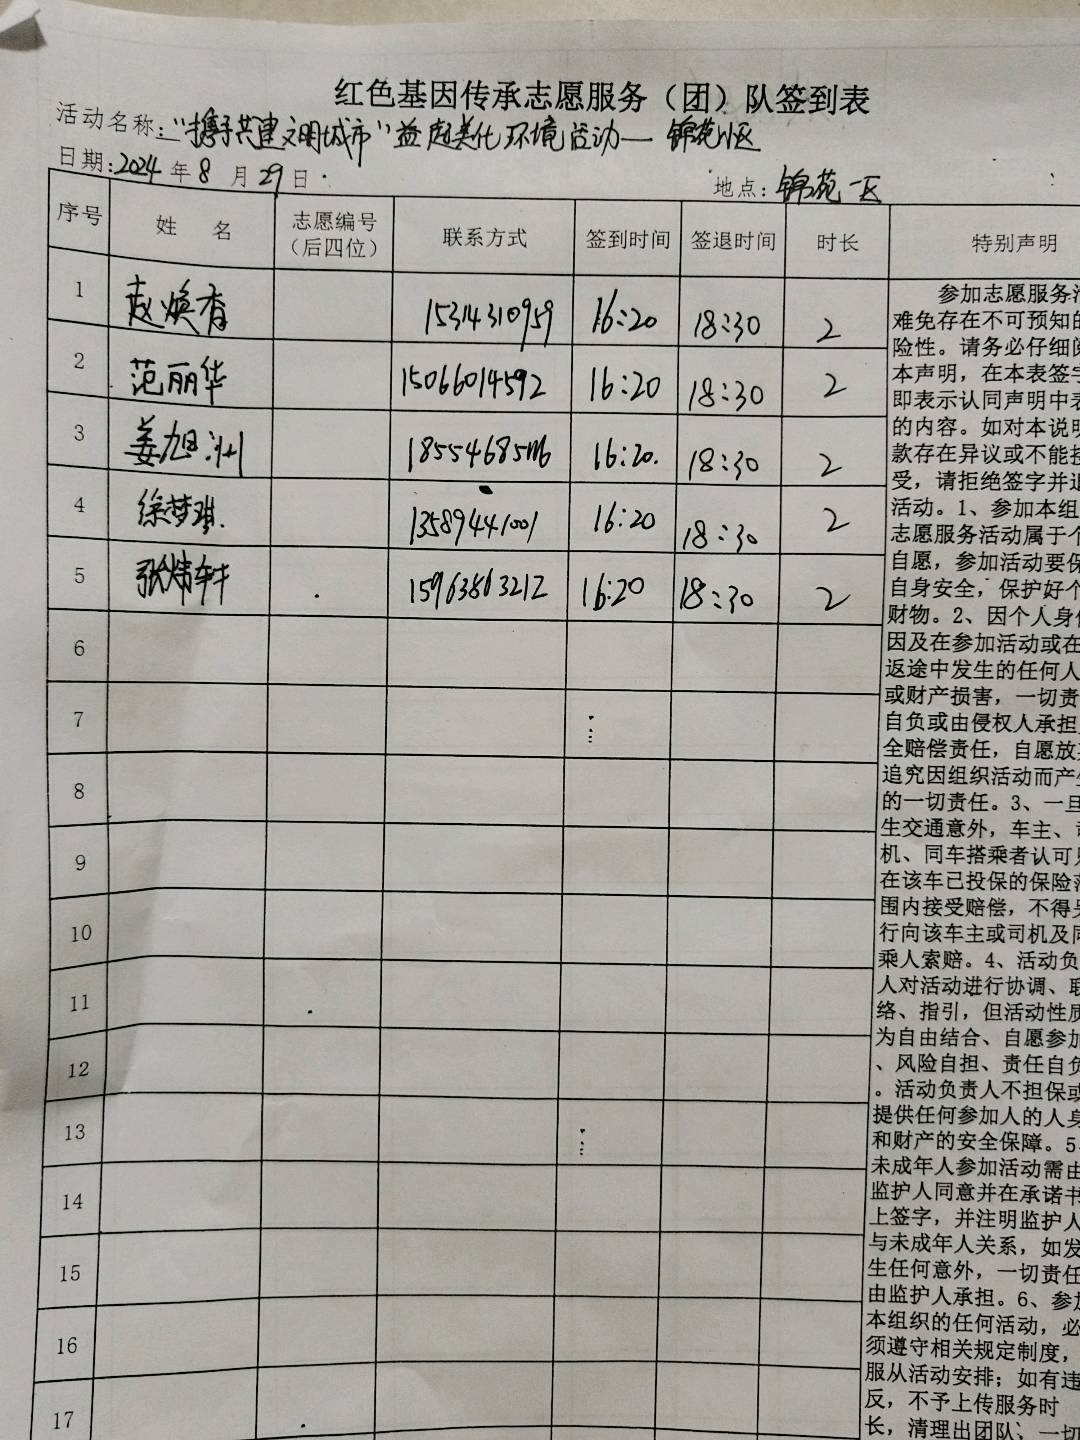 红色基因传承志愿服务（团）队签到表
活动名称："携手共建文明城市"益起美化环境活动—锦苑小区
日期：2024年8月29日
地点：锦苑一区
序号 姓 名 志愿编号（后四位） 联系方式 签到时间 签退时间 时长 特别声明
1 赵焕香 15314310959 16:20 18:30 2
2 范丽华 15066014592 16:20 18:30 2
3 姜旭洲 1855468 16:20. 18:30 2
4 徐梦琪. 13589441001 16:20 18:30 2
5 张炜轩 15963863212 16:20 18:30 2
6
7
8
9
10
11
12
13
14
15
16
17
参加志愿服务
难免存在不可预知的
险性。请务必仔细
本声明，在本表签字
即表示认同声明中表
的内容。如对本说明
款存在异议或不能接
受，请拒绝签字并退
活动。1、参加本组
志愿服务活动属于个
自愿，参加活动要保
自身安全，保护好个
财物。2、因个人身体
因及在参加活动或在
返途中发生的任何人
或财产损害，一切责
自负或由侵权人承担
全赔偿责任，自愿放弃
追究因组织活动而产生
的一切责任。3、一旦
生交通意外，车主、司
机、同车搭乘者认可
在该车已投保的保险范
围内接受赔偿，不得另
行向该车主或司机及同
乘人索赔。4、活动负
人对活动进行协调、联
络、指引，但活动性质
为自由结合、自愿参加
、风险自担、责任自负
。活动负责人不担保或
提供任何参加人的人身
和财产的安全保障。5、
未成年人参加活动需由
监护人同意并在承诺书
上签字，并注明监护人
与未成年人关系，如发
生任何意外，一切责任
由监护人承担。6、参加
本组织的任何活动，必
须遵守相关规定制度，
服从活动安排；如有违
反，不予上传服务时
长，清理出团队、一切